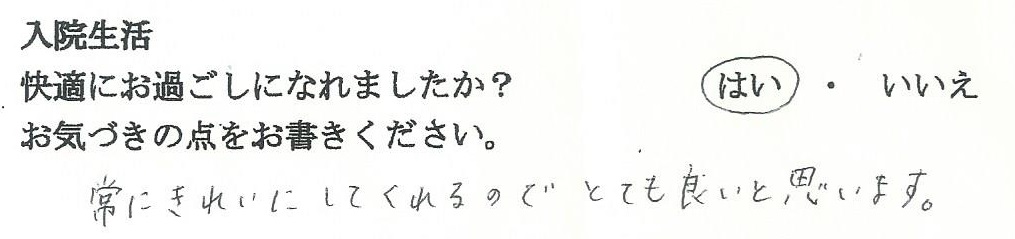 入院生活
快適にお過ごしになれましたか？ はい ・ いいえ
お気づきの点をお書きください。
常にきれいにしてくれるので とても良いと思います。